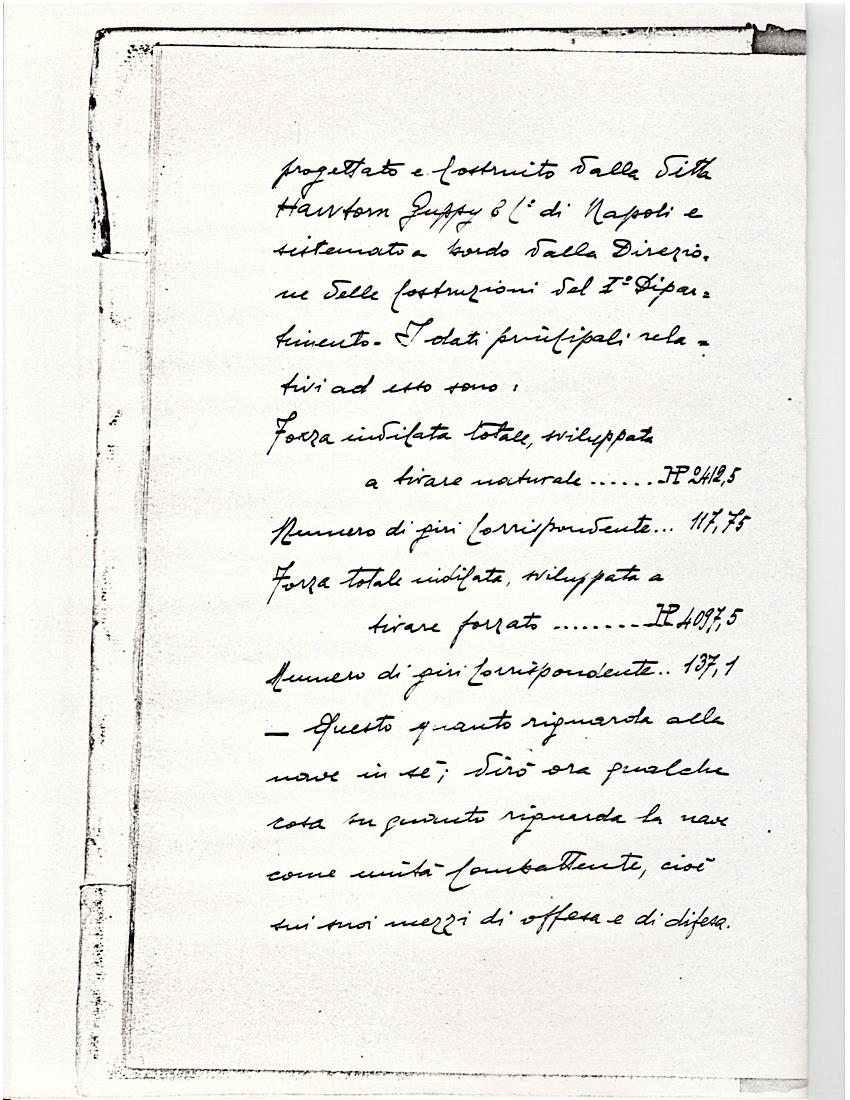 progettato e costruito dalla ditta
Hawtorn Guppy & C.° di Napoli e
sistemato a bordo dalla Direzio=
ne delle Costruzioni del I° Dipar=
timento. I dati principali rela=
tivi ad esso sono:
Forza indicata totale, sviluppata
a tirare naturale ...... HP 2412,5
Numero di giri corrispondente... 117,75
Forza totale indicata, sviluppata a
tirare forzato ......... HP 4097,5
Numero di giri corrispondente.. 137,1
— Questo quanto riguarda alla
nave in sè; dirò ora qualche
cosa su quanto riguarda la nave
come unità combattente, cioè
sui suoi mezzi di offesa e di difesa.